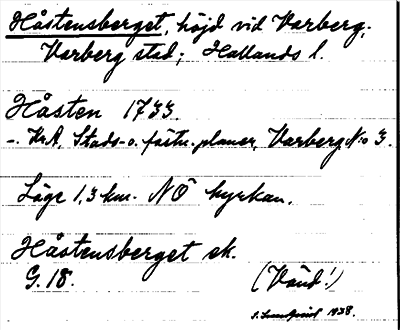 Håstensberget, höjd vid Varberg,
Varberg stad; Hallands l.
Håsten 1733.
-. Kr.A, Stads- o. fästn. planer, Varberg N:o 3.
Läge 1,3 km. NÖ kyrkan.
Håstensberget ek.
G. 18. (Vänd!)
S. Lundqvist 1938.